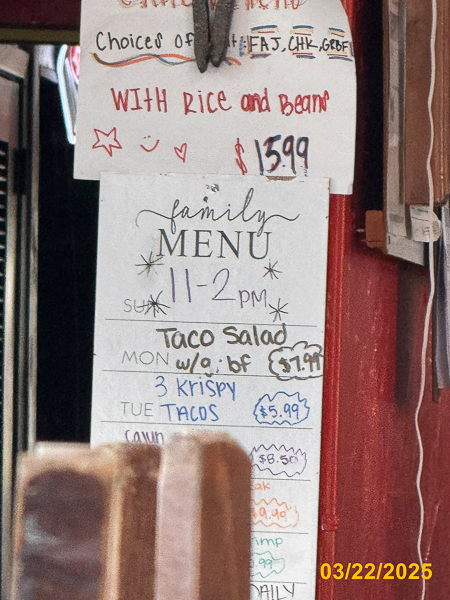 Choices of FAJ, CHK, GRBF
WITH Rice and Beans
$15.99
family
MENU
11-2pm
SUN
Taco Salad
MON w/g. bf $7.99
3 KRISPY
TUE TACOS $5.99
$8.50
9.99
.99
DAILY
03/22/2025